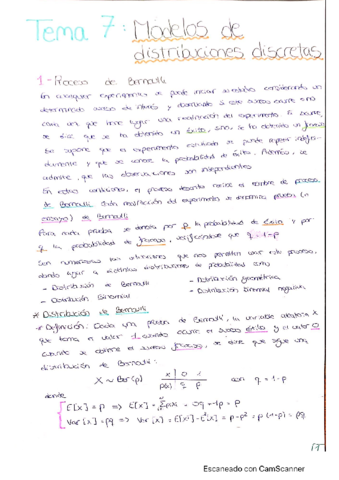 Tema 7: Modelos de
distribuciones discretas
1- Proceso de Bernoulli
En cualquier experimento se puede iniciar su estudio considerando un
determinado suceso de interés y observando si este suceso ocurre o no
cada vez que tiene lugar una realización del experimento. Si ocurre,
se dice que se ha obtenido un éxito, sino, se ha obtenido un fracaso.
Se supone que el experimento realizado se puede repetir
y que se conoce la probabilidad de éxito. Además, se
admite, que las observaciones son independientes.
En estas condiciones, el proceso descrito recibe el nombre de proceso
de Bernoulli. Cada realización del experimento se denomina prueba (o
ensayo) de Bernoulli.
Para cada prueba se denota por p la probabilidad de éxito y por
q la probabilidad de fracaso, verificándose que q=1-p
Son numerosas las situaciones que nos permiten usar este proceso,
dando lugar a distintas distribuciones de probabilidad como
- Distribución de Bernoulli
- Distribución geométrica
- Distribución Binomial
- Distribución binomial negativa
* Distribución de Bernoulli
* Definición: Dada una prueba de Bernoulli, la variable aleatoria X
que toma el valor 1 cuando ocurre el suceso éxito y el valor 0
cuando se obtiene el suceso fracaso, se dice que sigue una
distribución de Bernoulli:
X ~ Ber(p) x | 0 1 p(x) | q p con q = 1-p
donde
E[X] = p ⇒ E[X] = = 0q + 1p = p
Var[X] = pq ⇒ Var[X] = E[X²] - E²[X] = p - p² = p(1-p) = pq
Escaneado con CamScanner